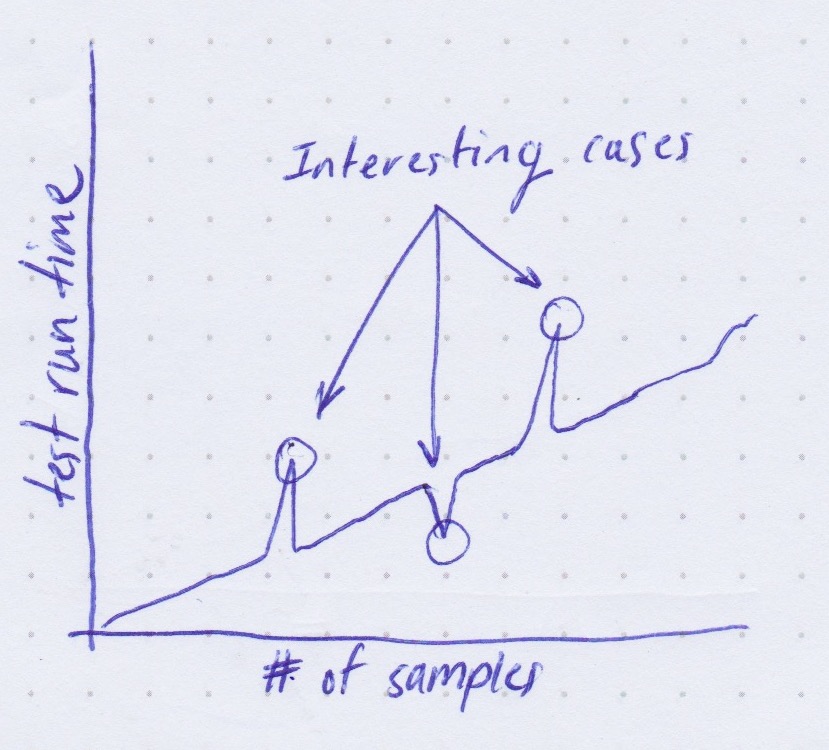 Interesting cases
test run time
# of samples